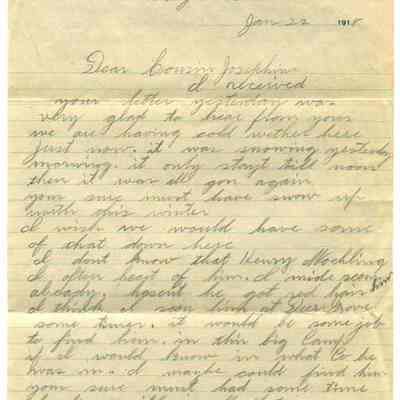 Jan 22 1918
Dear Cousin Josephine
I received
your letter yesterday was
very glad to hear from your
we are having cold wether here
just now. it was snowing yesterday
morning. it only stayt till noon
then it was all gon again
your sure must have snow up
with this winter
I wish we would have some
of that down here
I dont know that Henry Mochling
I often heart of him. I mide seen him
already, hasent he got red hair
I think I seen him at Deer Grove
some times. it would be some job
to find him. in this big Camp
if I would know in what Co he
was in. I maybe could find him
your sure must had some time